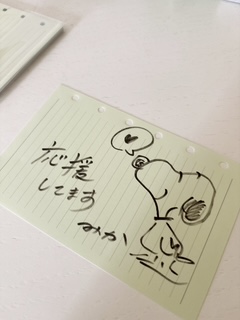 応援
してます
みか